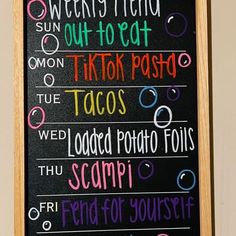 Weekly Menu
SUN out to eat
MON TikTok pasta
TUE Tacos
WED Loaded Potato Foils
THU scampi
FRI Fend for yourself